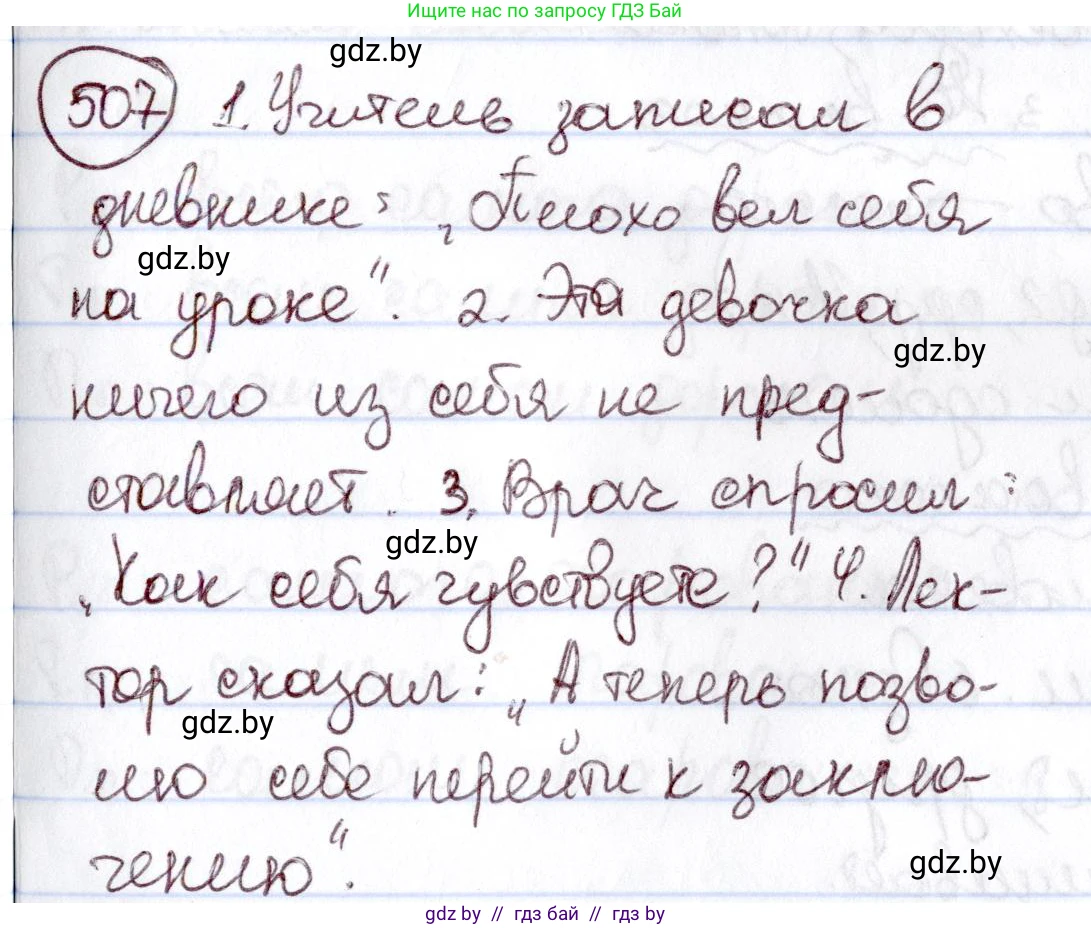 Ищите нас по запросу ГДЗ Бай
gdz.by
507 1. Учитель записал в
дневнике: „Плохо вел себя
gdz.by
на уроке“. 2. Эта девочка
gdz.by
ничего из себя не пред-
ставляет. 3. Врач спросил:
gdz.by
„Как себя чувствуете?“ 4. Лек-
тор сказал: „А теперь позво-
gdz.by
лю себе перейти к заклю-
чению“.
gdz.by
gdz.by // гдз бай // гдз by